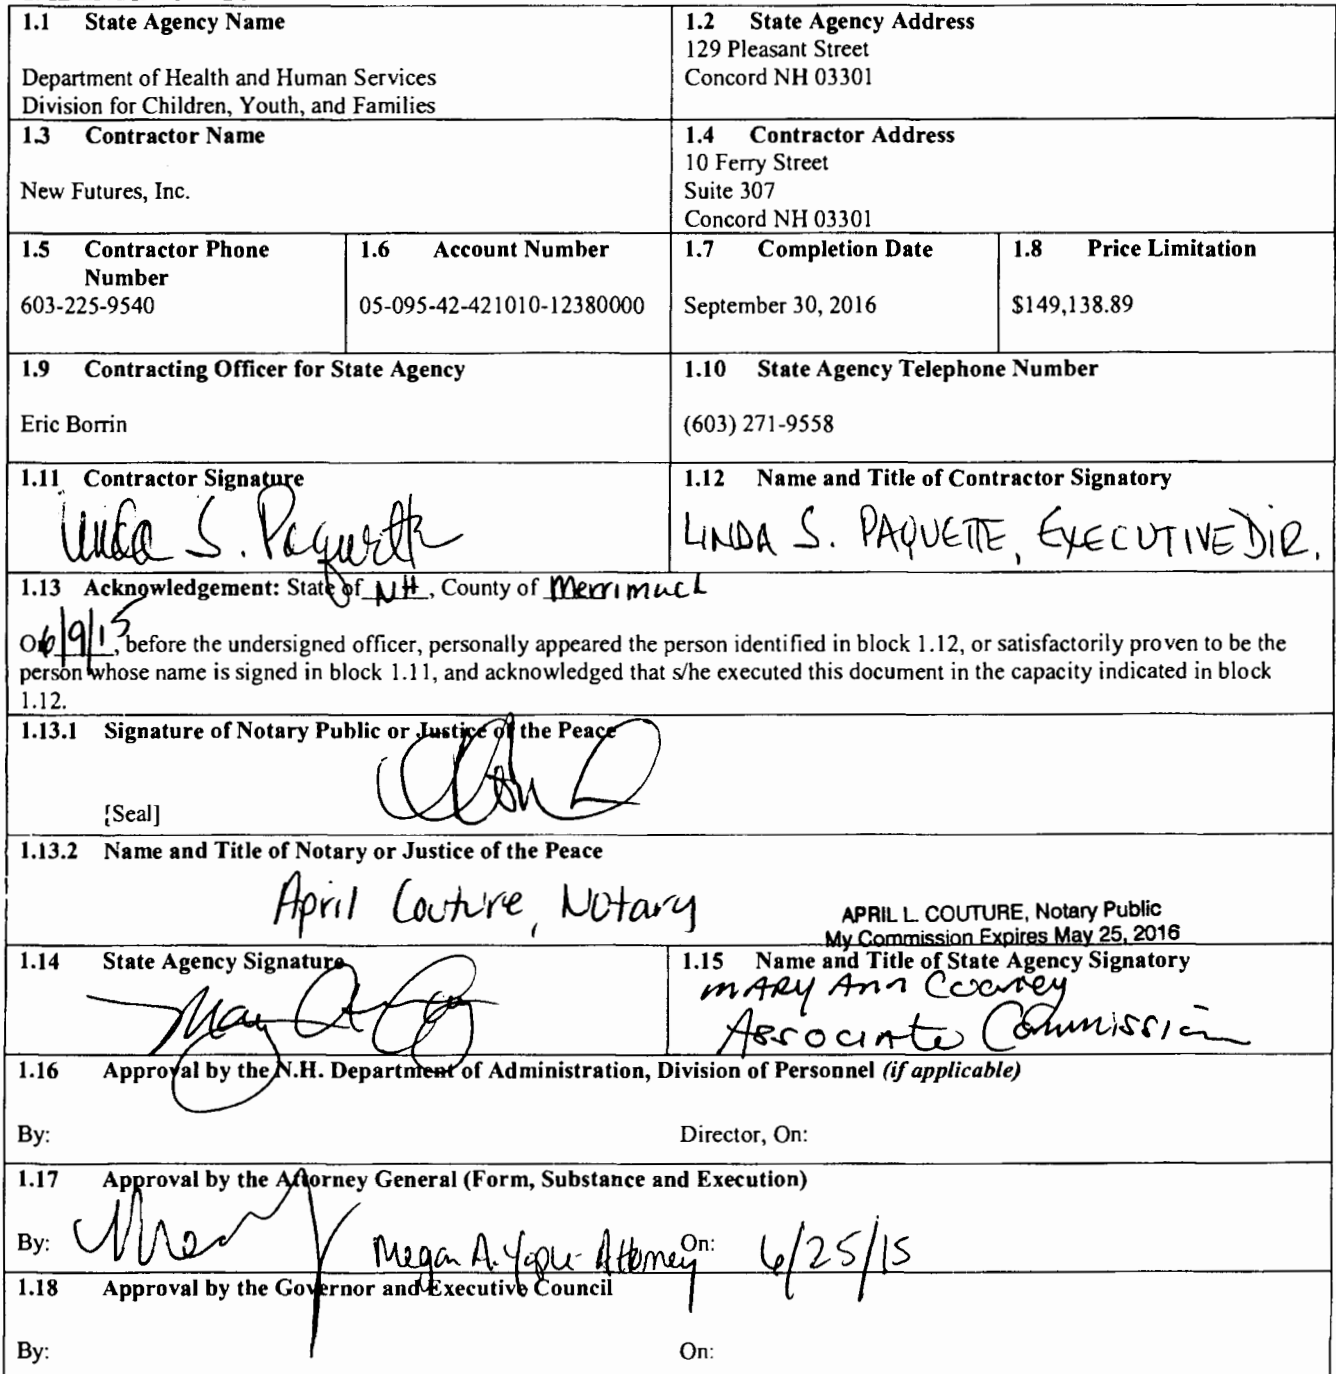 1.1 State Agency Name
Department of Health and Human Services
Division for Children, Youth, and Families
1.2 State Agency Address
129 Pleasant Street
Concord NH 03301
1.3 Contractor Name
New Futures, Inc.
1.4 Contractor Address
10 Ferry Street
Suite 307
Concord NH 03301
1.5 Contractor Phone
Number
603-225-9540
1.6 Account Number
05-095-42-421010-12380000
1.7 Completion Date
September 30, 2016
1.8 Price Limitation
$149,138.89
1.9 Contracting Officer for State Agency
Eric Borrin
1.10 State Agency Telephone Number
(603) 271-9558
1.11 Contractor Signature
Linda S. Paquette
1.12 Name and Title of Contractor Signatory
LINDA S. PAQUETTE, EXECUTIVE DIR.
1.13 Acknowledgement: State of NH, County of Merrimack
On 6/9/15, before the undersigned officer, personally appeared the person identified in block 1.12, or satisfactorily proven to be the
person whose name is signed in block 1.11, and acknowledged that s/he executed this document in the capacity indicated in block
1.12.
1.13.1 Signature of Notary Public or Justice of the Peace
[Seal]
1.13.2 Name and Title of Notary or Justice of the Peace
April Couture, Notary
APRIL L. COUTURE, Notary Public
My Commission Expires May 25, 2016
1.14 State Agency Signature
1.15 Name and Title of State Agency Signatory
MARY Ann Cooney
Associate Commission
1.16 Approval by the N.H. Department of Administration, Division of Personnel (if applicable)
By: Director, On:
1.17 Approval by the Attorney General (Form, Substance and Execution)
By: Megan A. Attorney On: 6/25/15
1.18 Approval by the Governor and Executive Council
By: On: